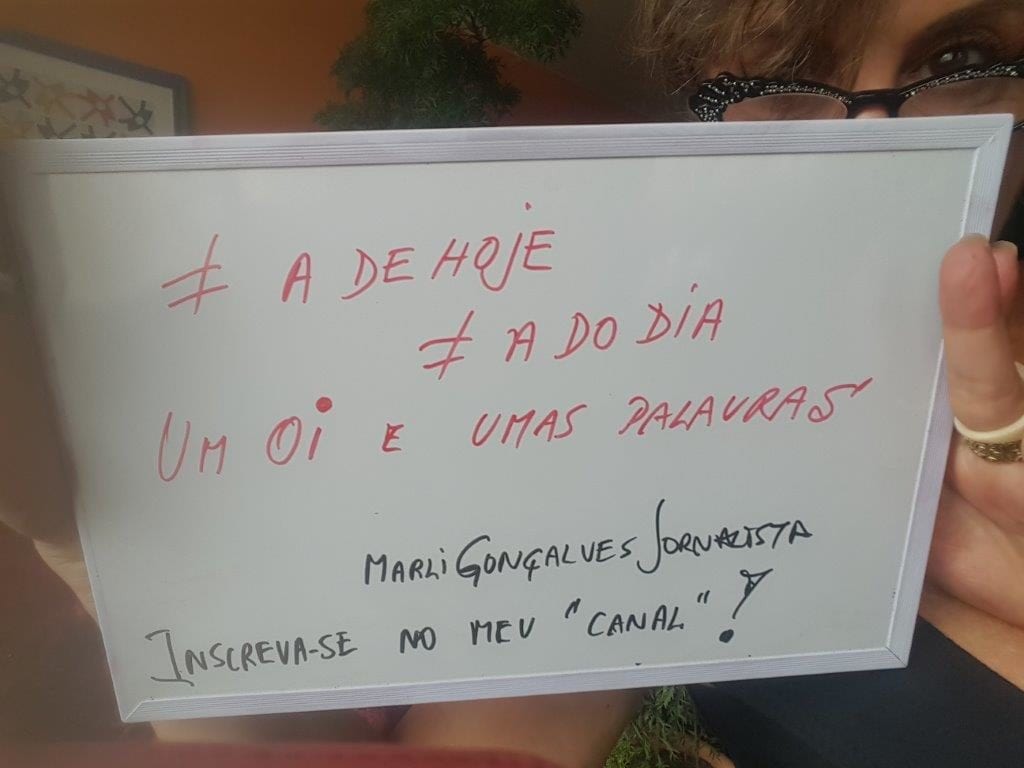 ≠ A DE HOJE
≠ A DO DIA
UM OI E UMAS PALAVRAS
MARLI GONÇALVES JORNALISTA
INSCREVA-SE NO MEU "CANAL"!